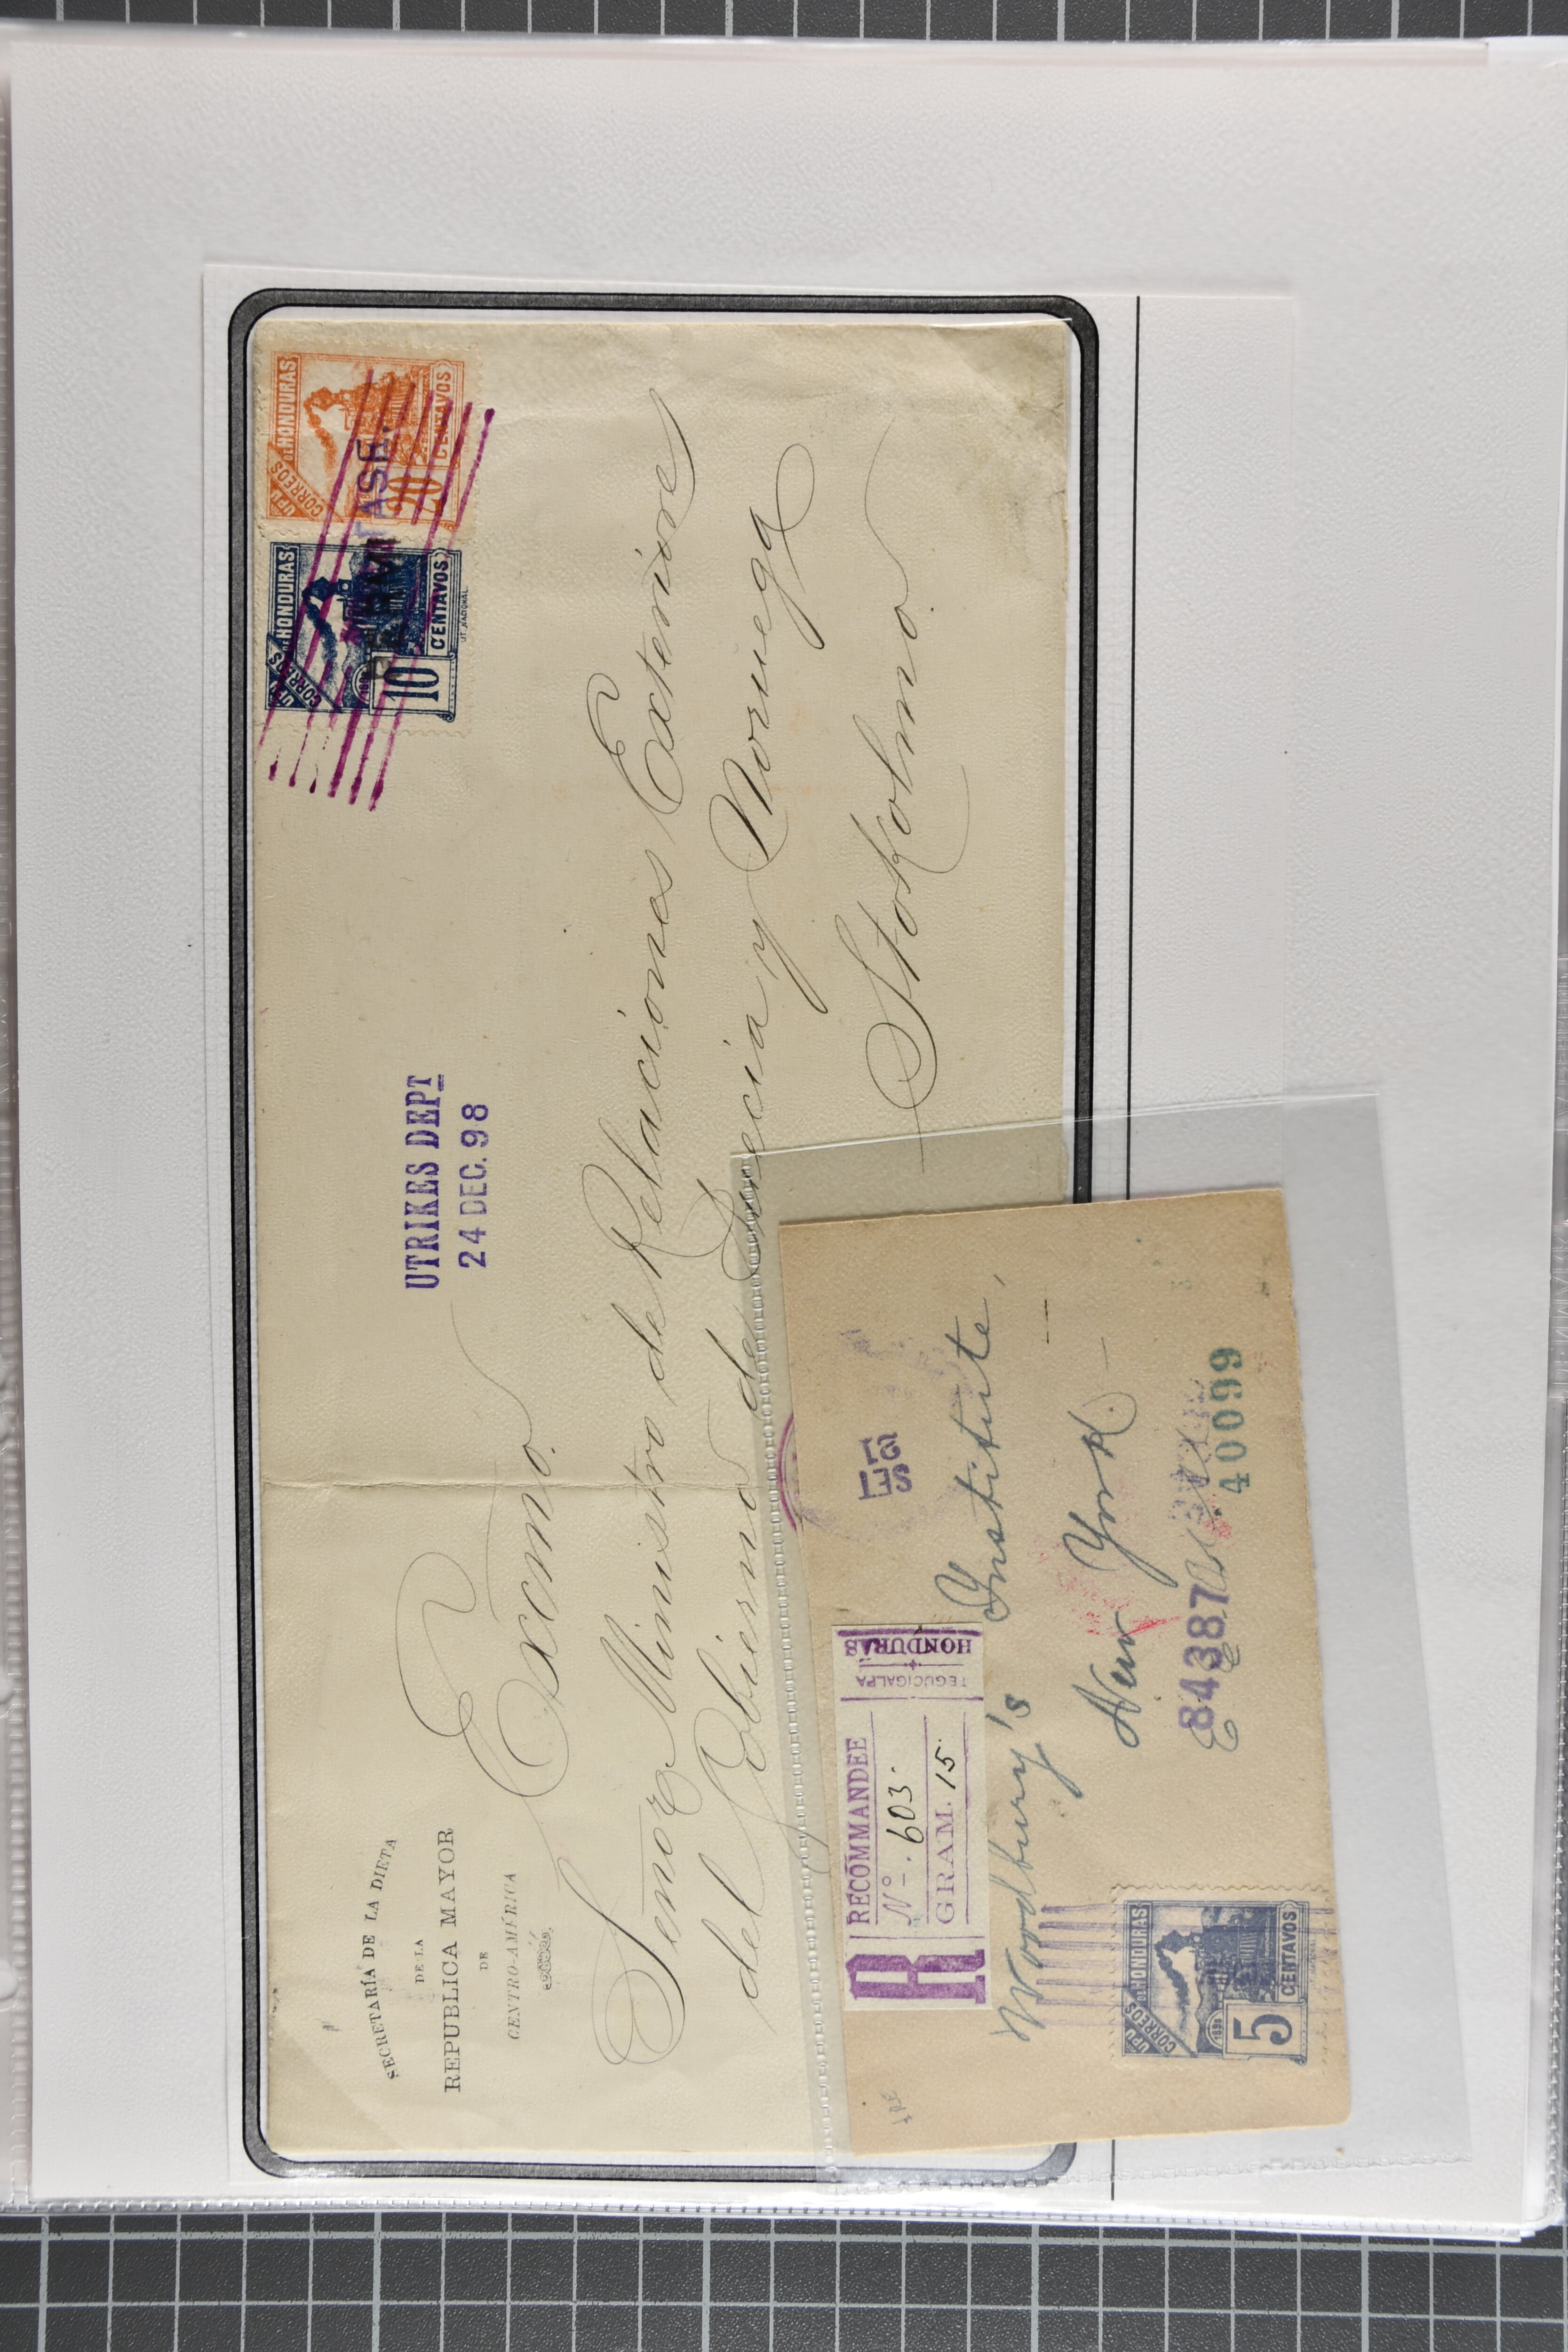 SECRETARÍA DE LA DIETA
DE LA
REPUBLICA MAYOR
DE
CENTRO-AMÉRICA
UTRIKES DEPT
24 DEC. 98
UPU
CORREOS DE HONDURAS
10 CENTAVOS
UPU
CORREOS DE HONDURAS
20 CENTAVOS
Excmo.
Señor Ministro de Relaciones Exteriores
del Gobierno de Suecia y Noruega
Stokolmo.
R
RECOMMANDEE
Nº. 603.
GRAM. 15.
TEGUCIGALPA
HONDURAS
Woodbury's Institute,
New York
84387
40099
UPU
CORREOS DE HONDURAS
1898
5 CENTAVOS